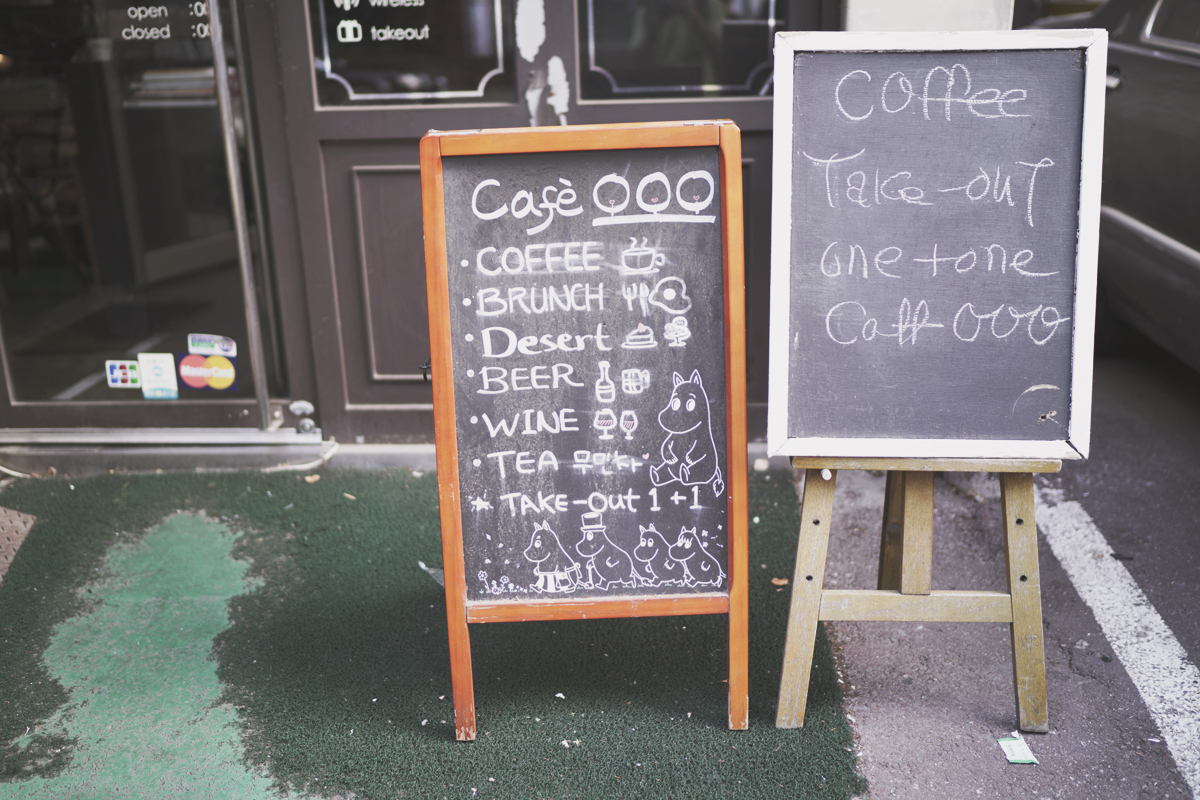 open :00
closed :00
wireless
takeout
JCB
MasterCard
Cafè OOO
• COFFEE
• BRUNCH
• Desert
• BEER
• WINE
• TEA 무민차
★ TAKE-OUT 1+1
Coffee
Take-OUT
one tone
Caff OOO